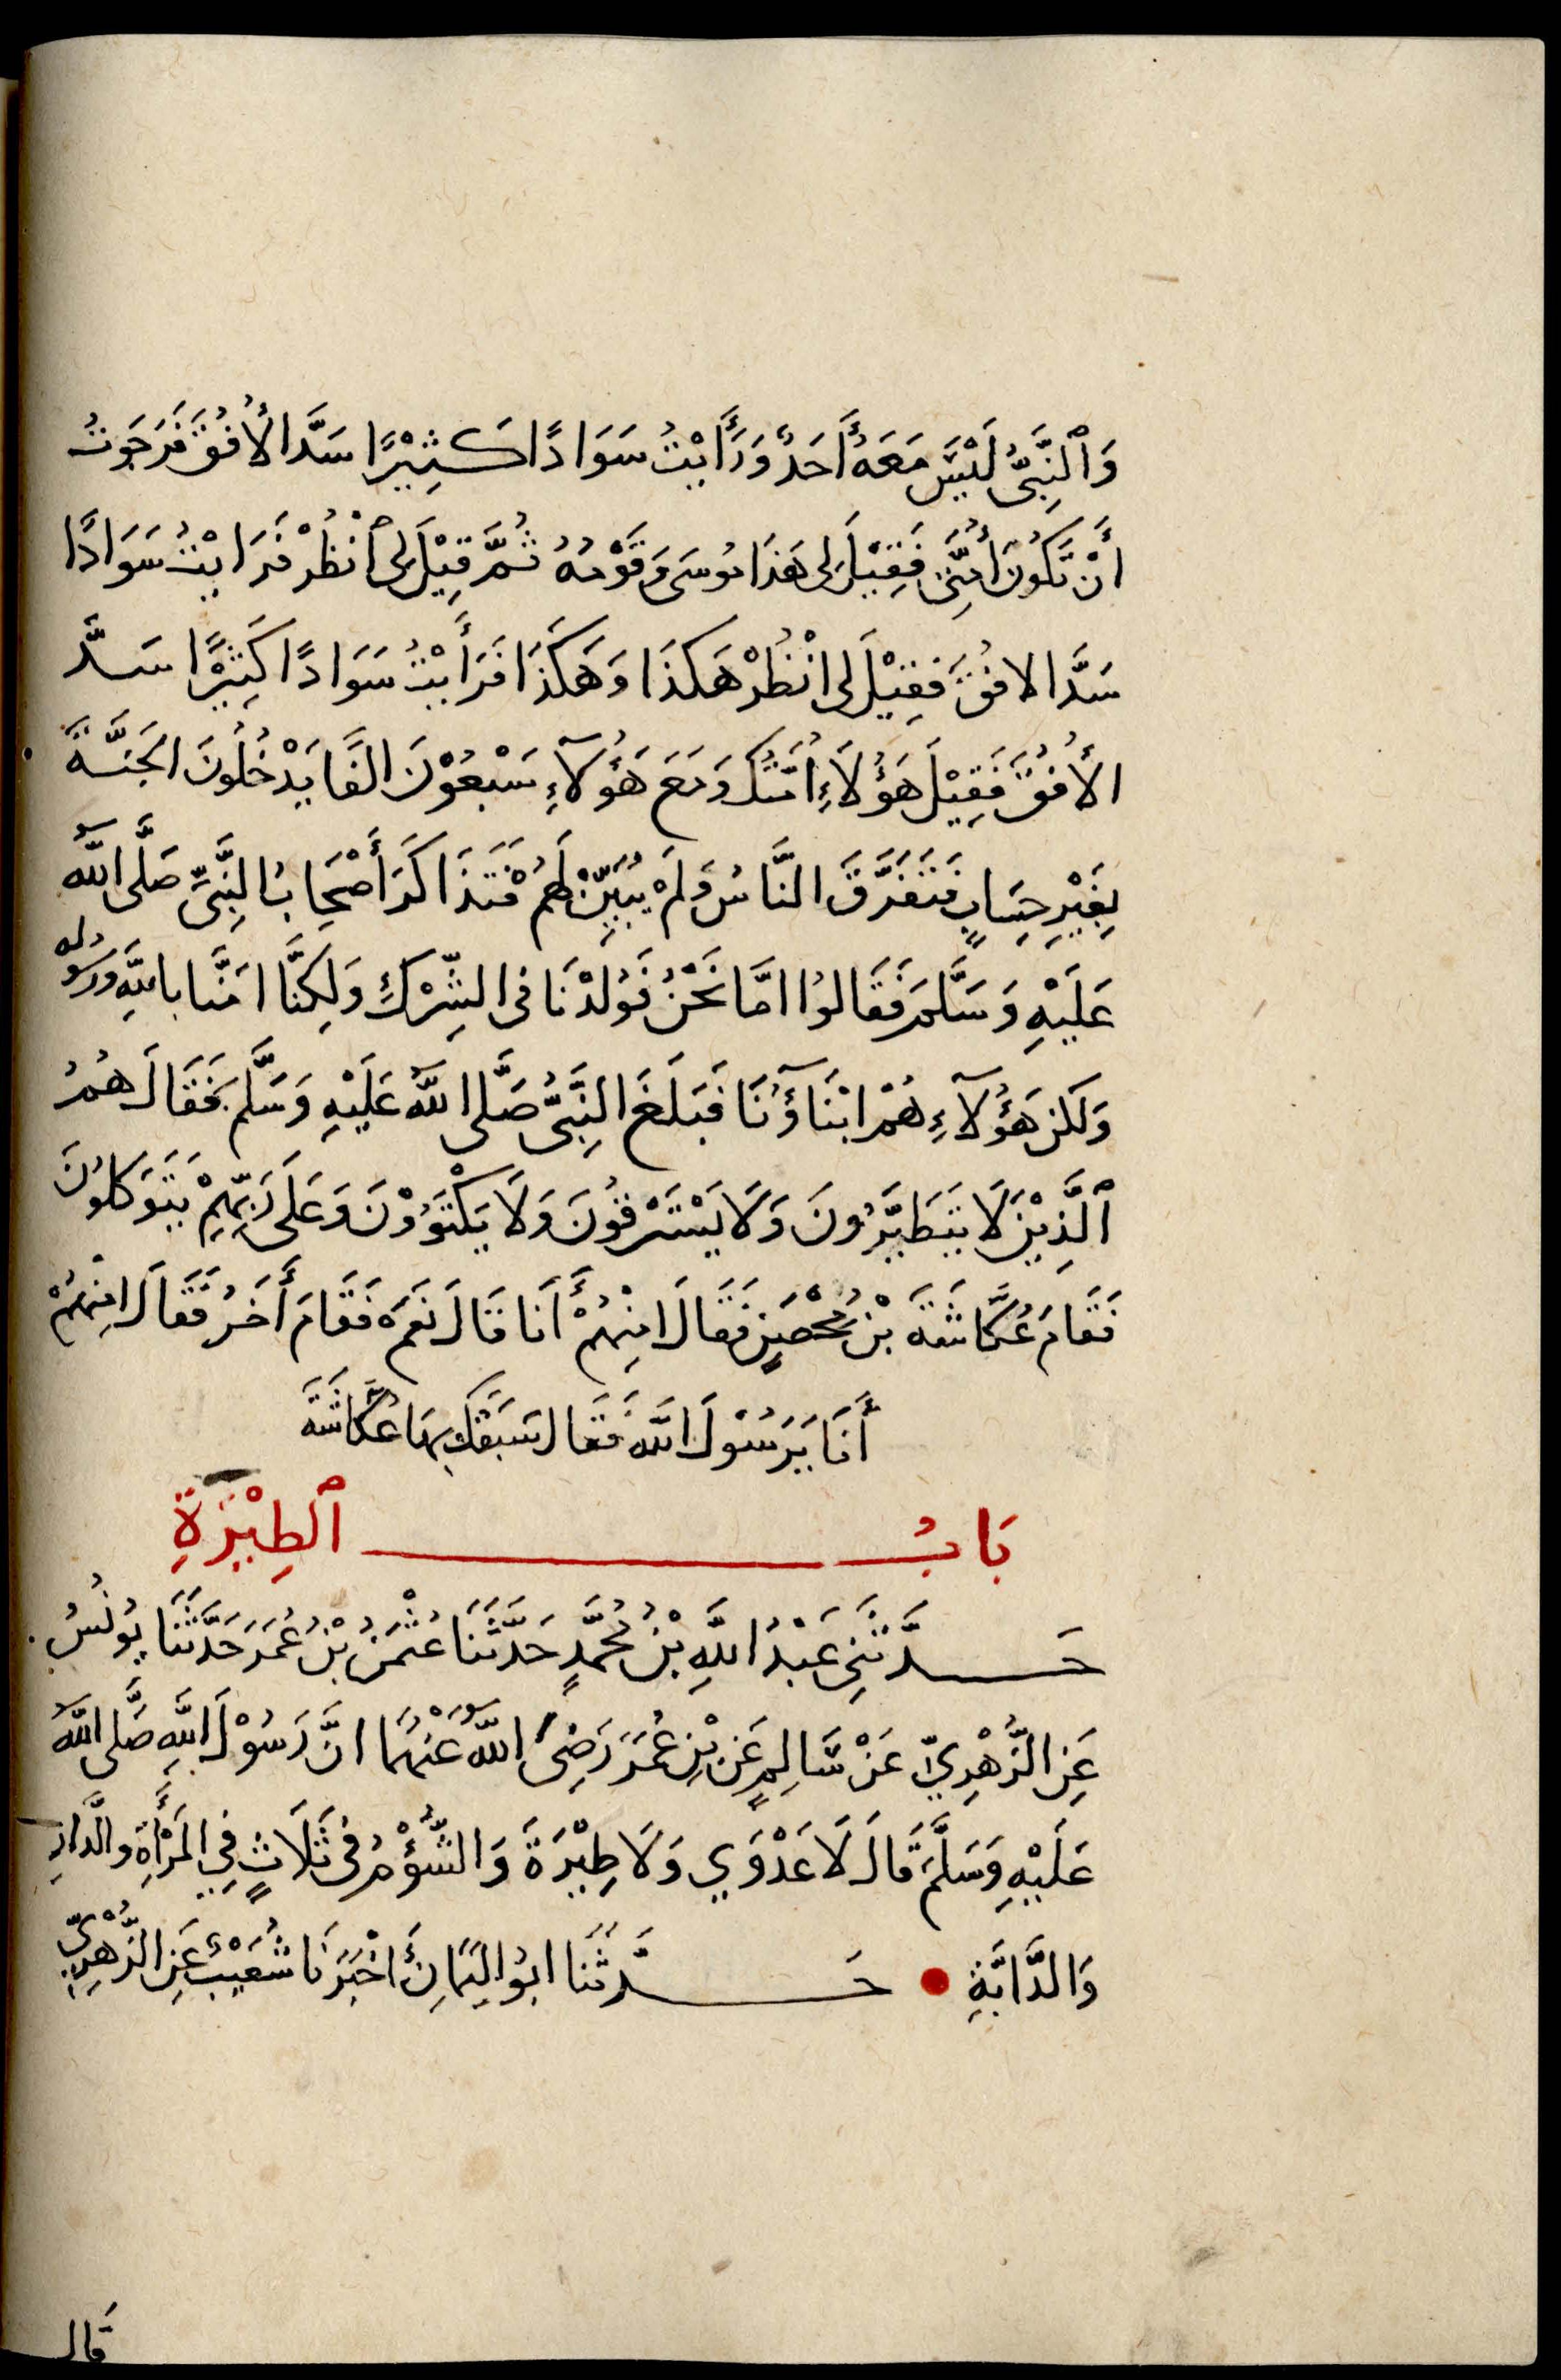 وَٱلنَّبِيُّ لَيْسَ مَعَهُ أَحَدٌ وَرَأَيْتُ سَوَادًا كَثِيْرًا سَدَّ الأُفُقَ فَرَجَوتُ
أَنْ تَكُونَ أُمَّتِي فَقِيْلَ لِى هَذَا مُوسَى وَقَوْمُهُ ثُمَّ قِيْلَ لِى ٱنْظُرْ فَرَايْتُ سَوَادًا
سَدَّ الافُقَ فَقِيْلَ لى انْظُرْ هَكَذَا وَهَكَذَا فَرَأَيْتُ سَوَادًا كَثِيْرًا سَدَّ
الأُفُقَ فَقِيْلَ هَؤُلَاءِ أُمَّتُكَ وَمَعَ هَؤُلآءِ سَبْعُوْنَ الفًا يَدْخُلُونَ الجَنَّةَ
بِغَيْرِ حِسَابٍ فَتَفَرَّقَ النَّاسُ وَلَمْ يُبَيِّنْ لَهُمْ فَتَذَاكَرَ أَصْحَابُ النَّبِيِّ صَلَّى اللَّهُ
عَلَيْهِ وَسَلَّمَ فَقَالُوا امَّا نَحْنُ فَوُلِدْنَا فى الشِّرْكِ وَلَكِنَّا امَنَّا باللَّهِ وَرَسُولِه
وَلَكن هَؤُلآءِ هُمْ ابْنَآؤُنَا فَبَلَغَ النَّبِيَّ صَلَّى اللَّهُ عَلَيْهِ وَسَلَّمَ فَقَالَ هُمُ
ٱلَّذِيْنَ لَا يَتَطَيَّرُونَ وَلَا يَسْتَرْقُونَ وَلَا يَكْتَوُوْنَ وَعَلَى رَبِّهِمْ يَتَوَكَلُونَ
فَقَامَ عُكَّاشَةَ بْنُ مُحْصَنٍ فَقَالَ امِنْهُمْ أَنَا قَالَ نَعَمْ فَقَامَ أَخَرُ فَقَالَ امِنْهُمْ
أَنَا يَرَسُوْلَ اللَّه فَقَال سَبَقَكَ بِهَا عُكَّاشَةَ
بَابُ ٱلطِيْرَةِ
حَدَّثَنِي عَبْدُ اللَّهِ بْنُ مُحَمَّدٍ حَدَّثَنَا عُثْمَنُ بْنُ عُمَرَ حَدَّثَنَا يُونُسُ
عَنِ الزُّهْرِيِّ عَنْ سَالِمٍ عَن بْنِ عُمَرَ رَضِىَ اللَّهُ عَنْهُمَا انَّ رَسُوْلَ اللَّهِ صَلَّى اللَّهُ
عَلَيْهِ وَسَلَّمَ قَالَ لَا عَدْوَي وَلَا طِيْرَةَ وَالشُّؤْمُ فى ثَلَاثٍ فِي المَرْأَةِ والدَّارِ
وَالدَّابَّةِ حَدَّثَنَا ابُو اليَمَانِ أَخْبَرَنَا شُعَيْبٌ عَنِ الزُّهْرِيِّ
قَال